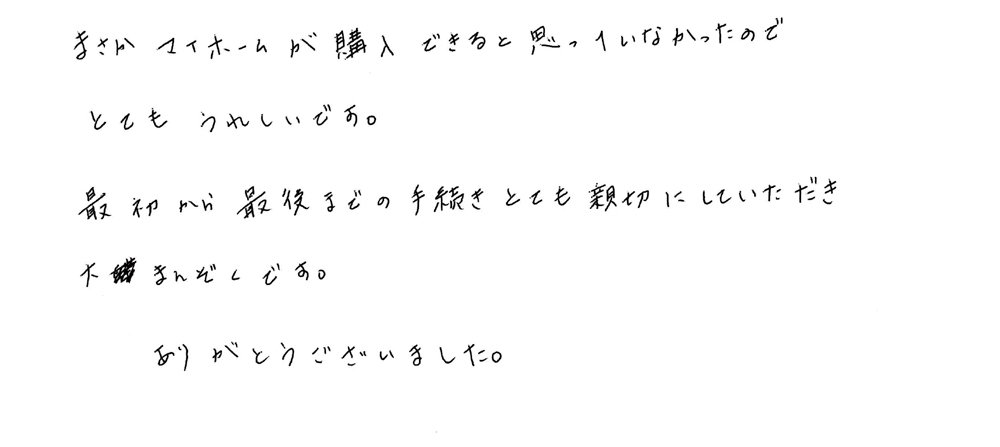 まさかマイホームが購入できると思っていなかったので
とても うれしいです。
最初から最後までの手続きとても親切にしていただき
大まんぞくです。
ありがとうございました。